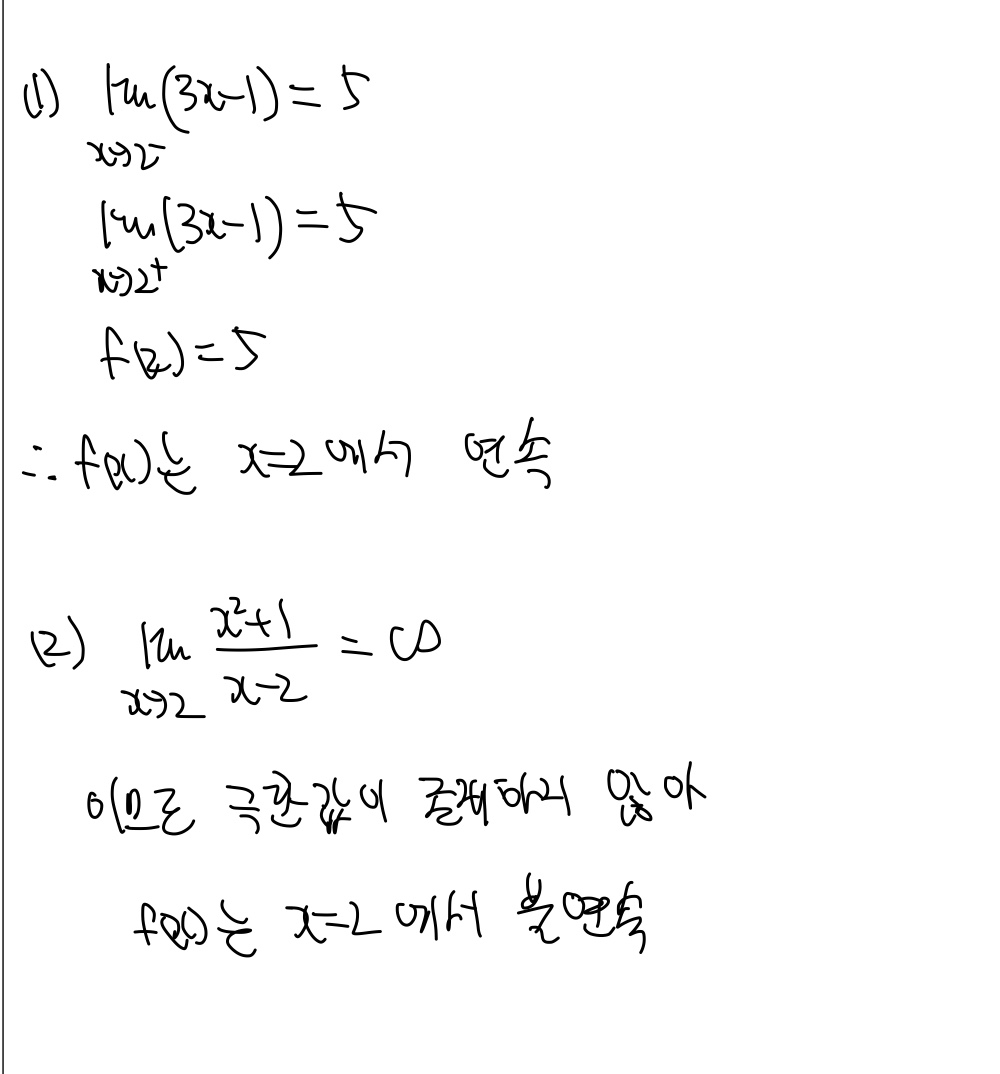 (1) lim(3x-1)=5
x→2-
lim(3x-1)=5
x→2+
f(2)=5
∴ f(x)는 x=2에서 연속
(2) lim (x²+1)/(x-2) = ∞
x→2
이므로 극한값이 존재하지 않아
f(x)는 x=2에서 불연속